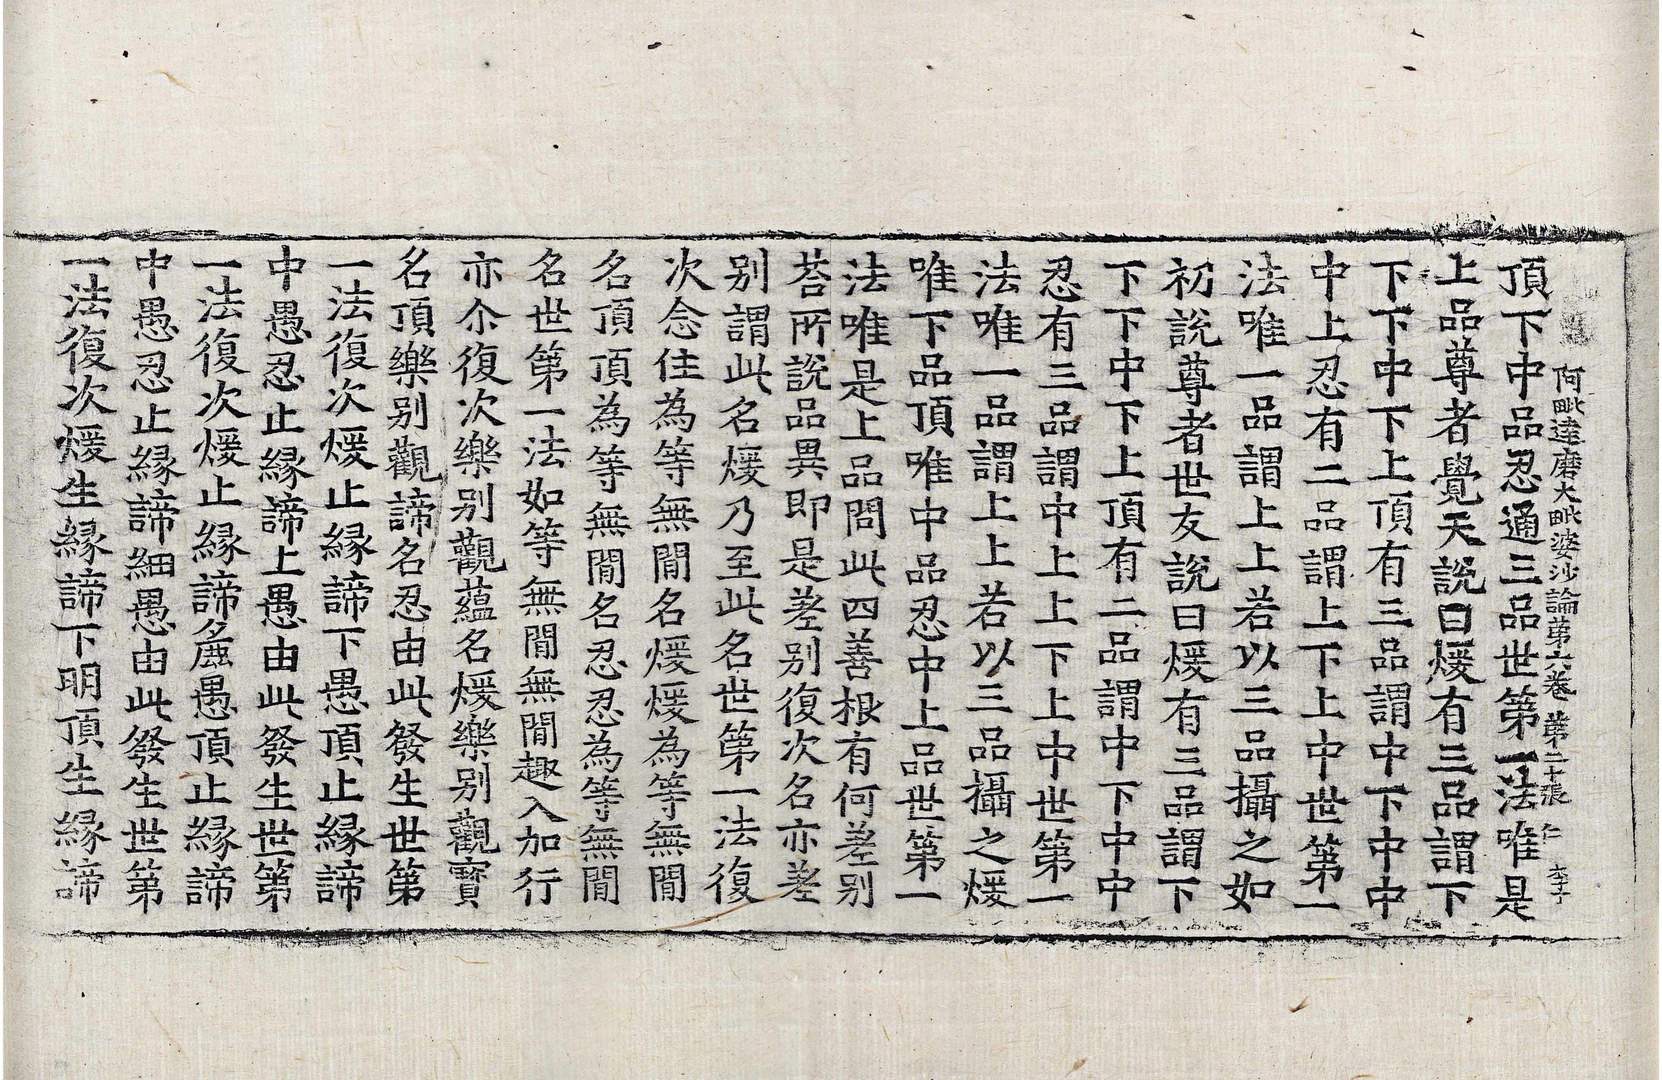 阿毗達磨大毗婆沙論第六卷 第二十張 仁
頂下中品忍通三品世第一法唯是
上品尊者覺天說曰煖有三品謂下
下下中下上頂有三品謂中下中中
中上忍有二品謂上下上中世第一
法唯一品謂上上若以三品攝之如
初說尊者世友說曰煖有三品謂下
下下中下上頂有二品謂中下中中
忍有三品謂中上上下上中世第一
法唯一品謂上上若以三品攝之煖
唯下品頂唯中品忍中上品世第一
法唯是上品問此四善根有何差别
荅所說品異即是差别復次名亦差
别謂此名煖乃至此名世第一法復
次念住為等無閒名煖煖為等無閒
名頂頂為等無閒名忍忍為等無閒
名世第一法如等無閒無閒趣入加行
亦尒復次樂别觀蘊名煖樂别觀寶
名頂樂别觀諦名忍由此發生世第
一法復次煖止緣諦下愚頂止緣諦
中愚忍止緣諦上愚由此發生世第
一法復次煖止緣諦麁愚頂止緣諦
中愚忍止緣諦細愚由此發生世第
一法復次煖生緣諦下明頂生緣諦